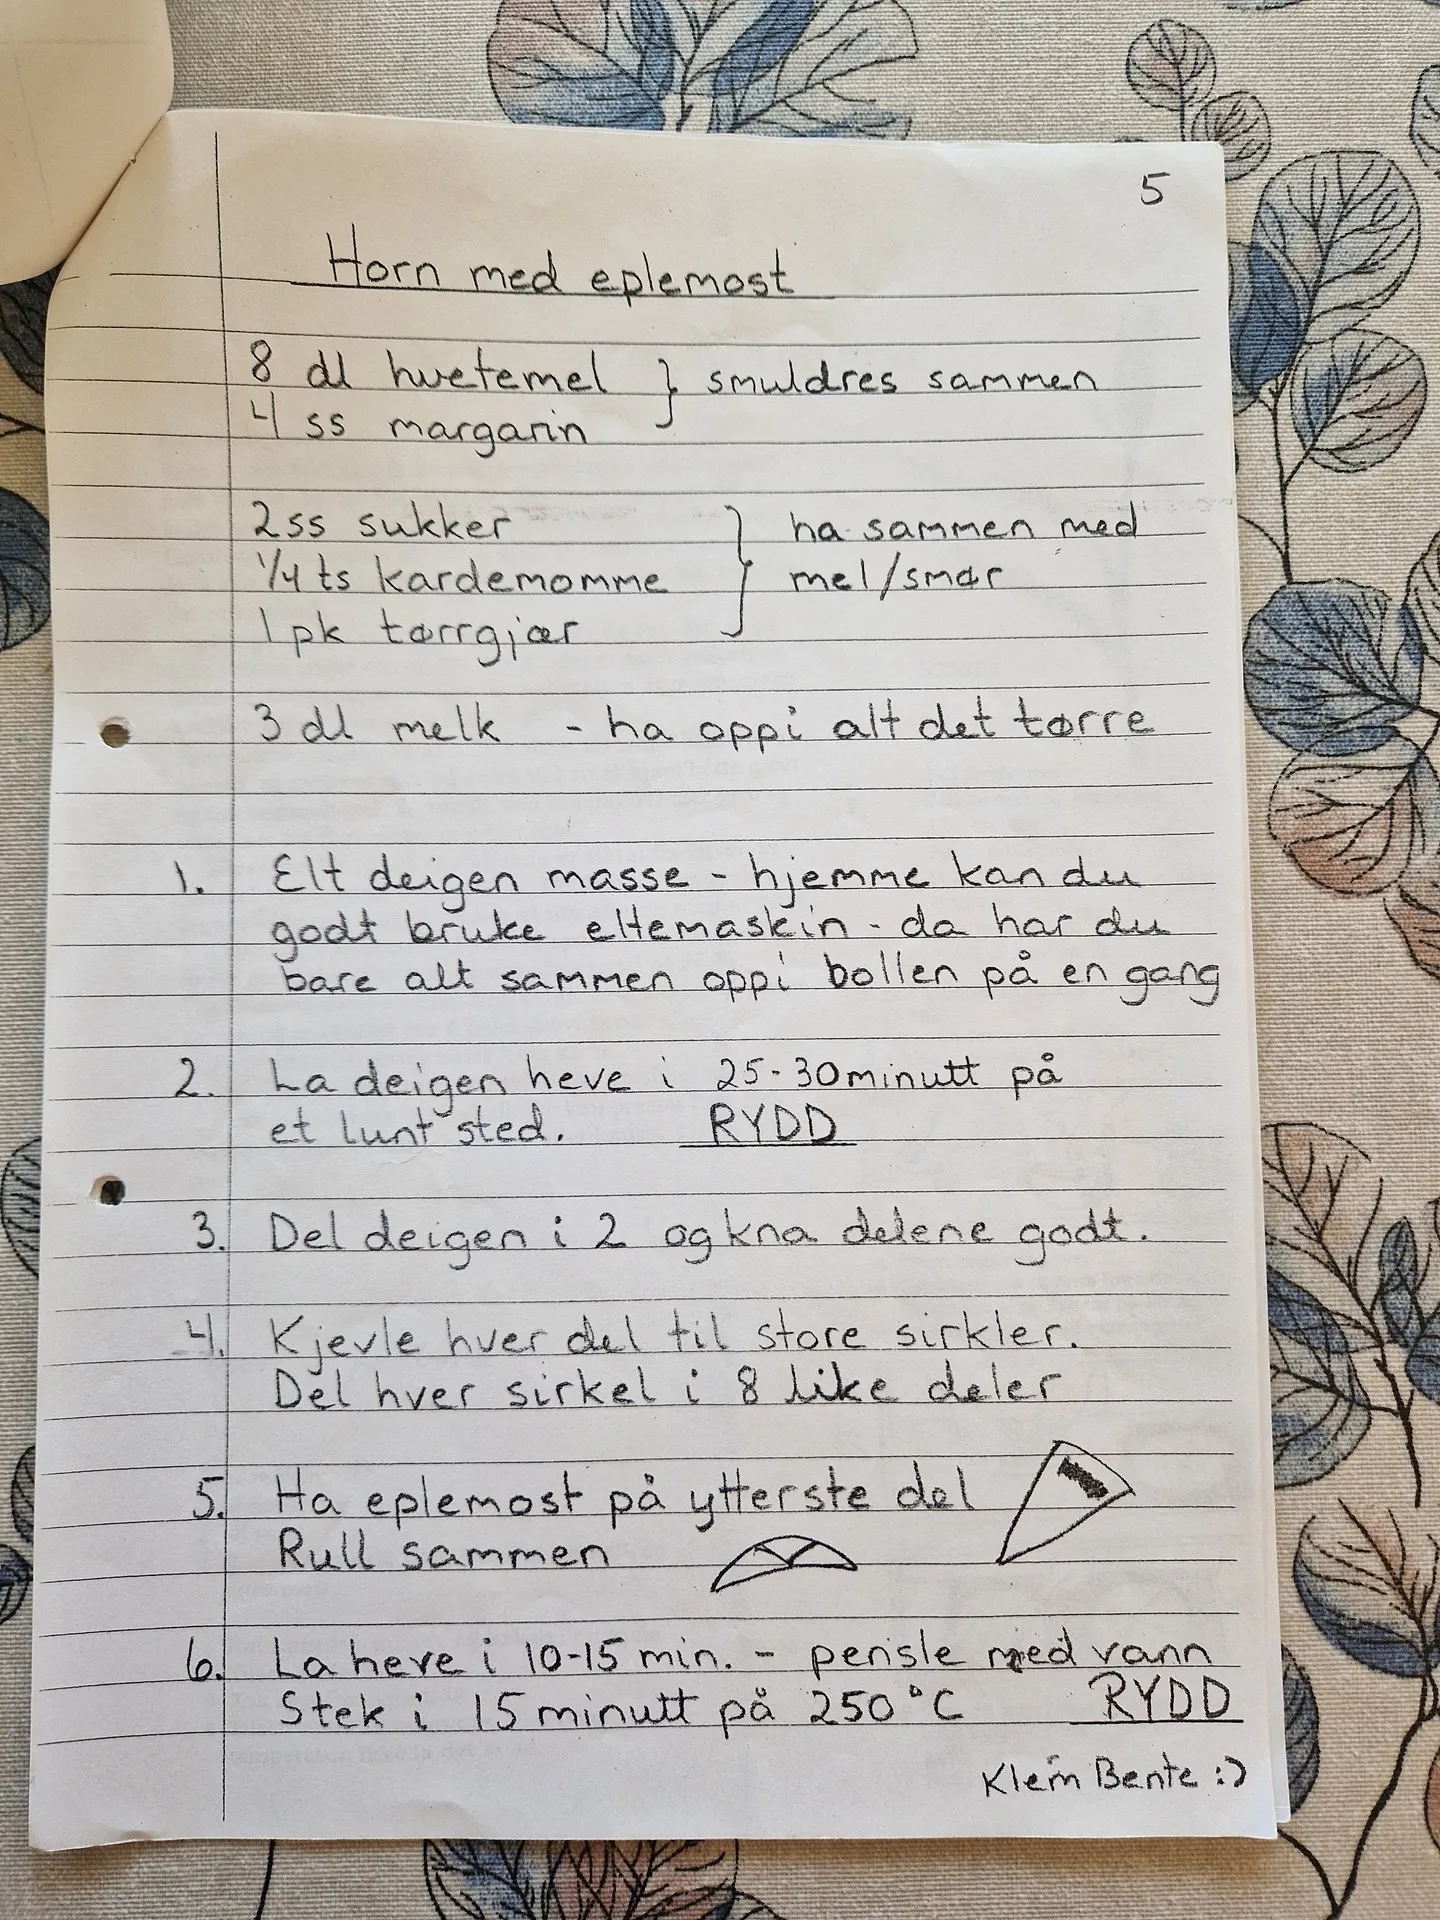 5
Horn med eplemost
8 dl hvetemel } smuldres sammen
4 ss margarin
2 ss sukker } ha sammen med
1/4 ts kardemomme mel/smør
1 pk tørrgjær
3 dl melk - ha oppi alt det tørre
1. Elt deigen masse - hjemme kan du
godt bruke eltemaskin - da har du
bare alt sammen oppi bollen på en gang
2. La deigen heve i 25-30 minutt på
et lunt sted. RYDD
3. Del deigen i 2 og kna delene godt.
4. Kjevle hver del til store sirkler.
Del hver sirkel i 8 like deler
5. Ha eplemost på ytterste del
Rull sammen
6. La heve i 10-15 min. - pensle med vann
Stek i 15 minutt på 250°C RYDD
Klem Bente :)